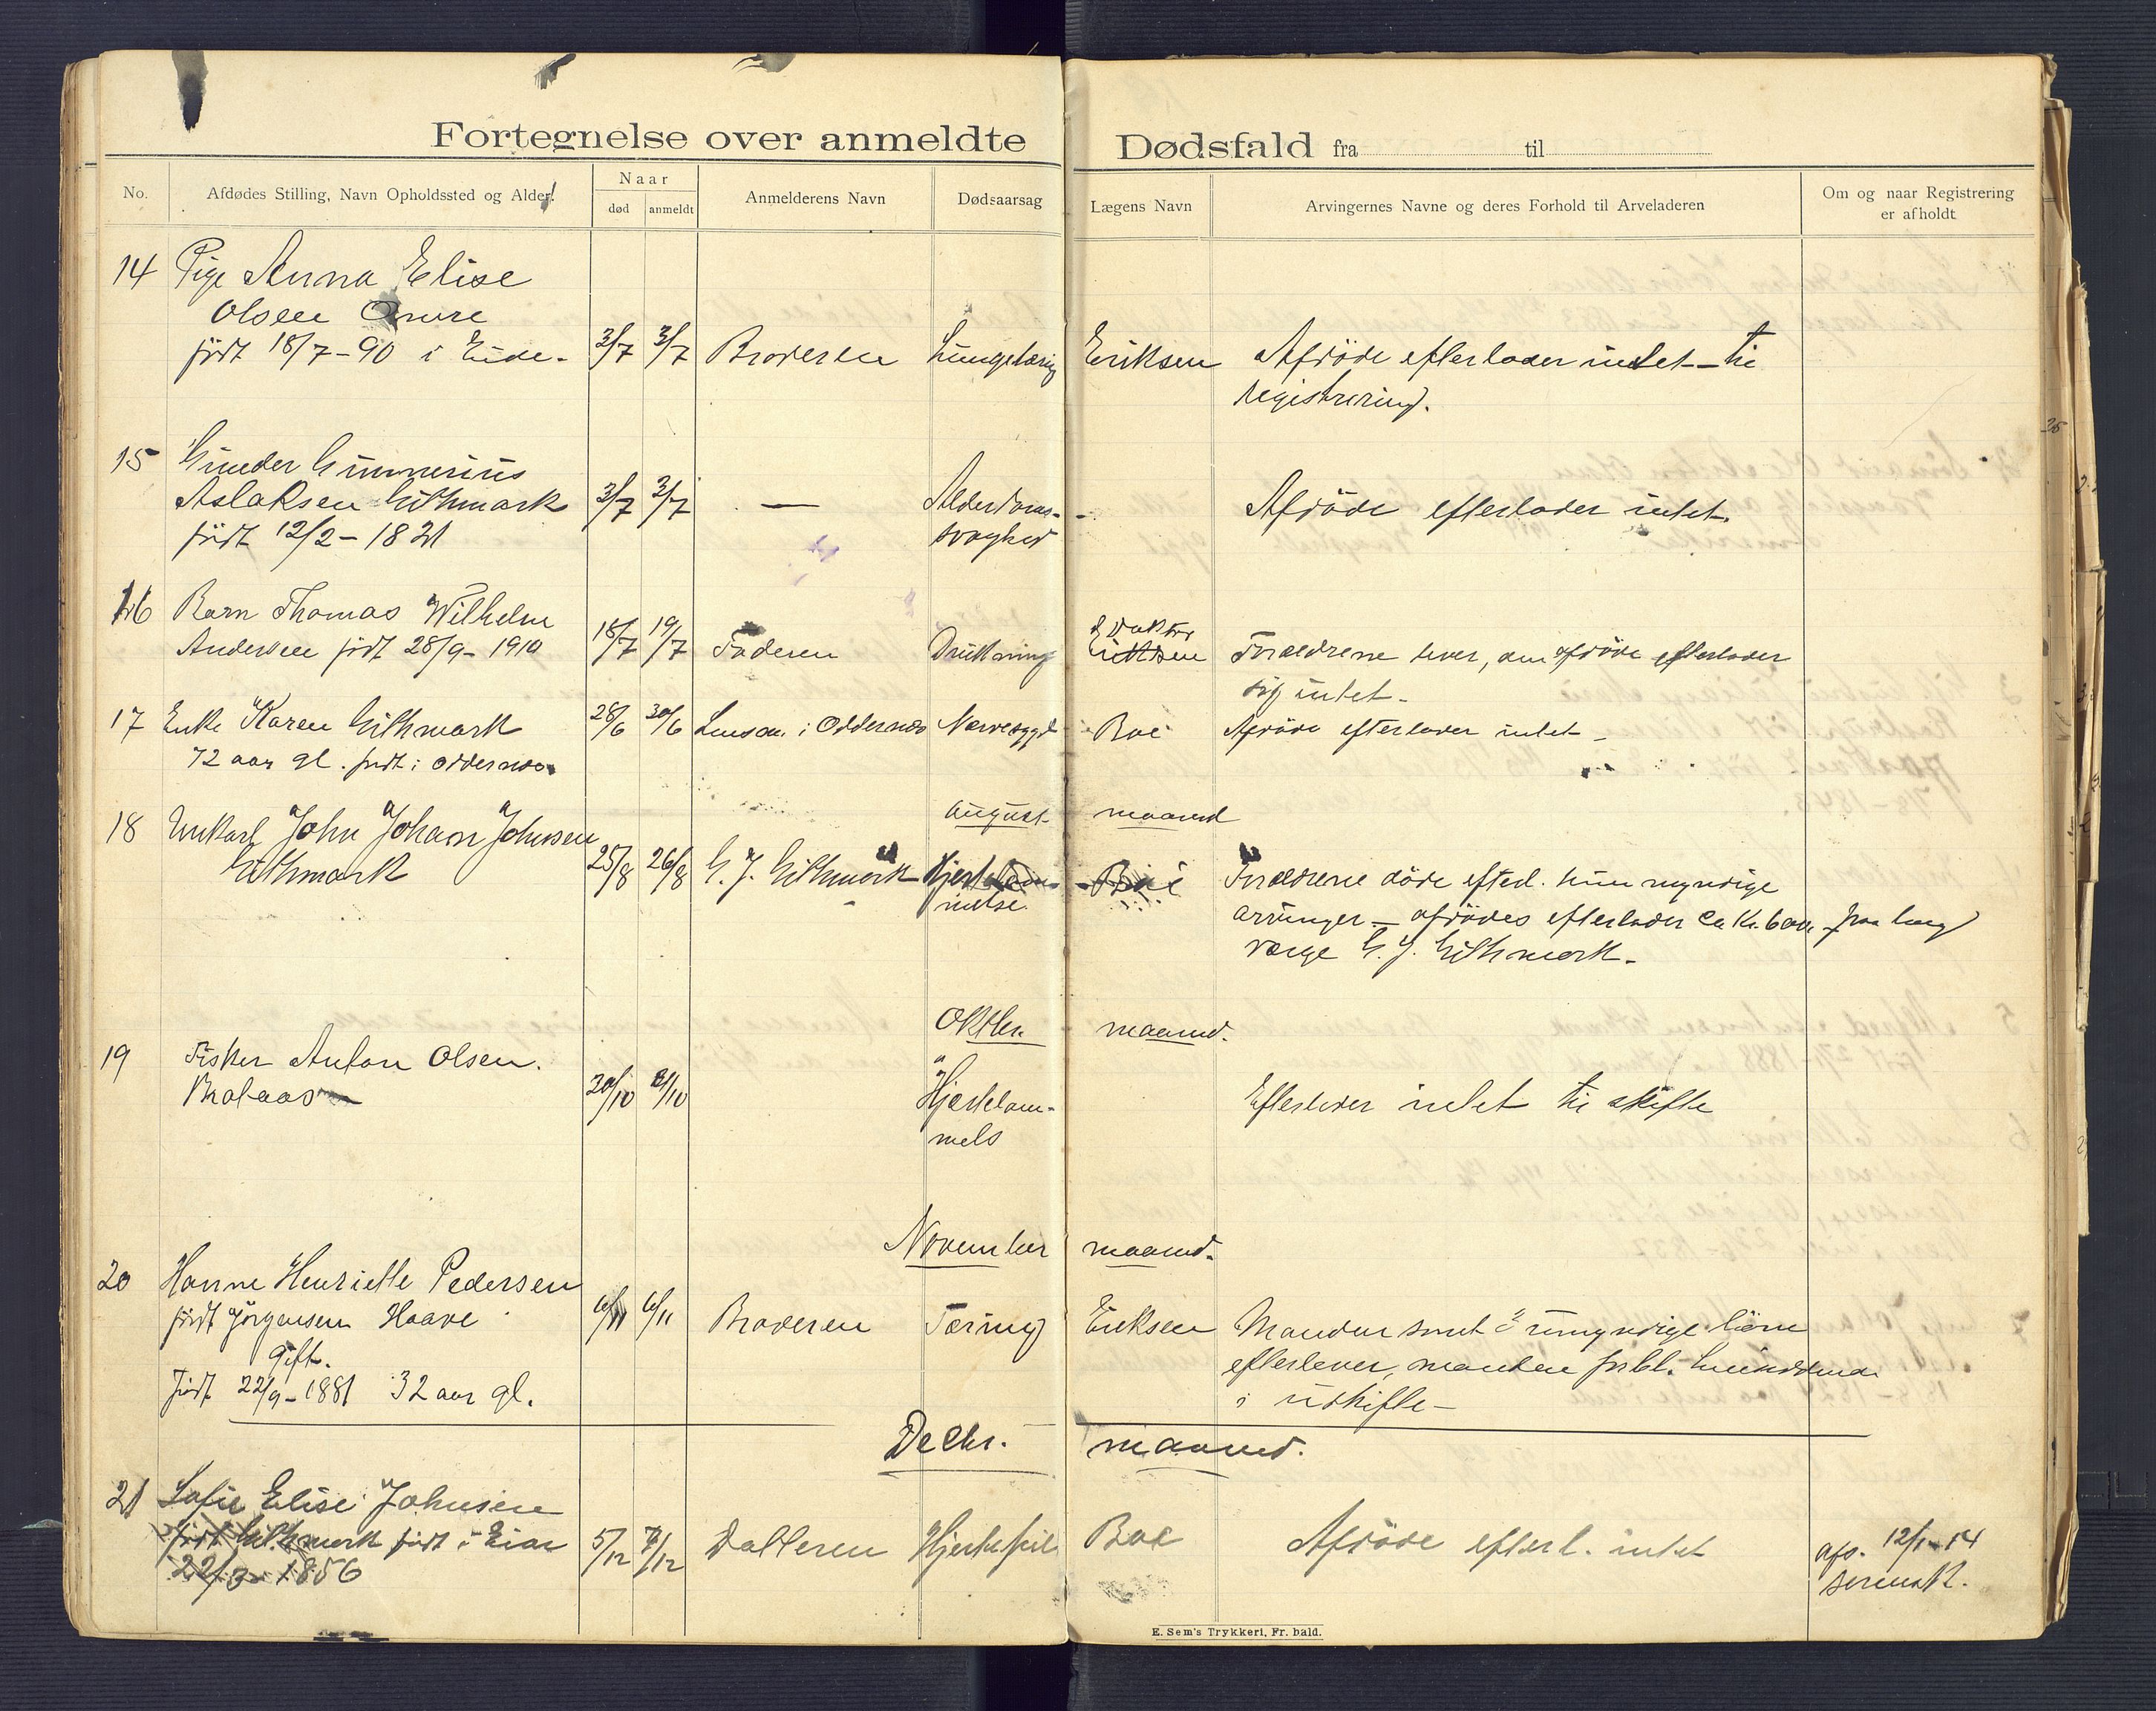 Fortegnelse over anmeldte Dødsfald fra til
No. Afdødes Stilling, Navn Opholdssted og Alder. Naar død anmeldt Anmelderens Navn Dødsaarsag Lægens Navn Arvingernes Navne og deres Forhold til Arveladeren Om og naar Registrering er afholdt
14 Pige Anna Elise
Olsen
født 18/7-90 i Eide. 3/7 3/7 Broderen Lungetæring Eriksen Afdöde efterlader intet til
registrering.
15 Gunder Gunnerius
Aslaksen Githmark 3/7 3/7 — Alderdoms- - Afdöde efterlader intet.
født 12/2-1821 svaghed
16 Barn Thomas Wilhelm
Andersen født 28/9-1910 18/7 19/7 Faderen Drukning Doktor Eriksen Foreldrene lever, den afdöde efterlader
sig intet-
17 Enke Karen Githmark 28/6 30/6 Lensm. i Oddernes Nervesygd Boe Afdöde efterlader intet -
72 aar gl. født i Oddernes
August maaned
18 Unkarl John Johan Johnsen
Githmark 25/8 26/8 G. J. Githmark Hjertelam- Boe Foreldrene döde efterl. kun myndige
melse. arvinger - afdödes efterlader ca Kr. 600
værge G. J. Githmark-
Oktbr. maaned.
19 Fisker Anton Olsen.
20/10 21/10 Hjertelam- Efterlader intet til skifte
mels
November maaned.
20 Hanne Henriette Pedersen
født Jörgensen Haave 6/11 6/11 Broderen Tæring Eriksen Manden samt 3 umyndige börn
gift. efterlever, manden forbl.
født 22/9-1881 32 aar gl. i uskifte -
Decbr. maaned.
21 Sofie Elise Johnsen
født Githmark født i Eide 5/12 7/12 Datteren Hjertefeil Boe Afdöde efterl. intet afs. 12/1-14
22/3-1856 sorensk.
E. Sem's Trykkeri, Fr. hald.